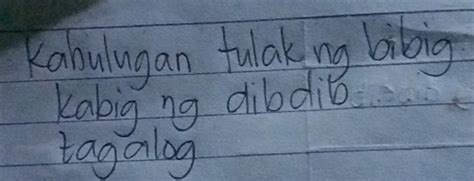 Kabulugan tulak ng bibig
kabig ng dibdib
tagalog